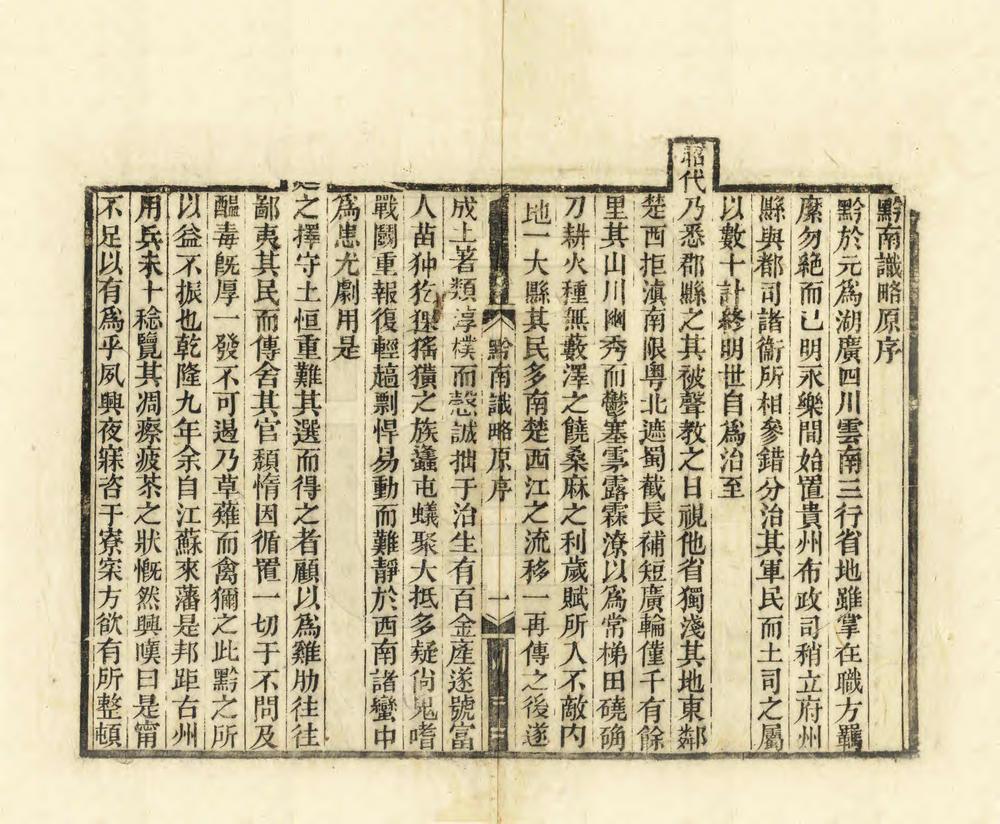 黔南識略原序
黔於元爲湖廣四川雲南三行省地雖掌在職方羈
縻勿絶而已明永樂間始置貴州布政司稍立府州
縣與都司諸衞所相參錯分治其軍民而土司之屬
以數十計終明世自爲治至
昭代乃悉郡縣之其被聲教之日視他省獨淺其地東鄰
楚西拒滇南限粵北遮蜀截長補短廣輪僅千有餘
里其山川幽秀而鬱塞霧露霖潦以爲常梯田磽确
刀耕火種無藪澤之饒桑麻之利歲賦所入不敵内
地一大縣其民多南楚西江之流移一再傳之後遂
黔南識略原序
一
成土著類淳樸而愨誠拙于治生有百金產遂號富
人苗狆犵猓猺獚之族蠭屯蟻聚大抵多疑尙鬼嗜
戰鬭重報復輕趫剽悍易動而難靜於西南諸蠻中
爲患尤劇用是
之擇守土恒重難其選而得之者顧以爲雞肋往往
鄙夷其民而傳舍其官頹惰因循置一切于不問及
醖毒旣厚一發不可遏乃草薙而禽獮之此黔之所
以益不振也乾隆九年余自江蘇來藩是邦距右州
用兵未十稔覽其凋瘵疲苶之狀慨然興嘆曰是甯
不足以有爲乎夙興夜寐咨于寮寀方欲有所整頓